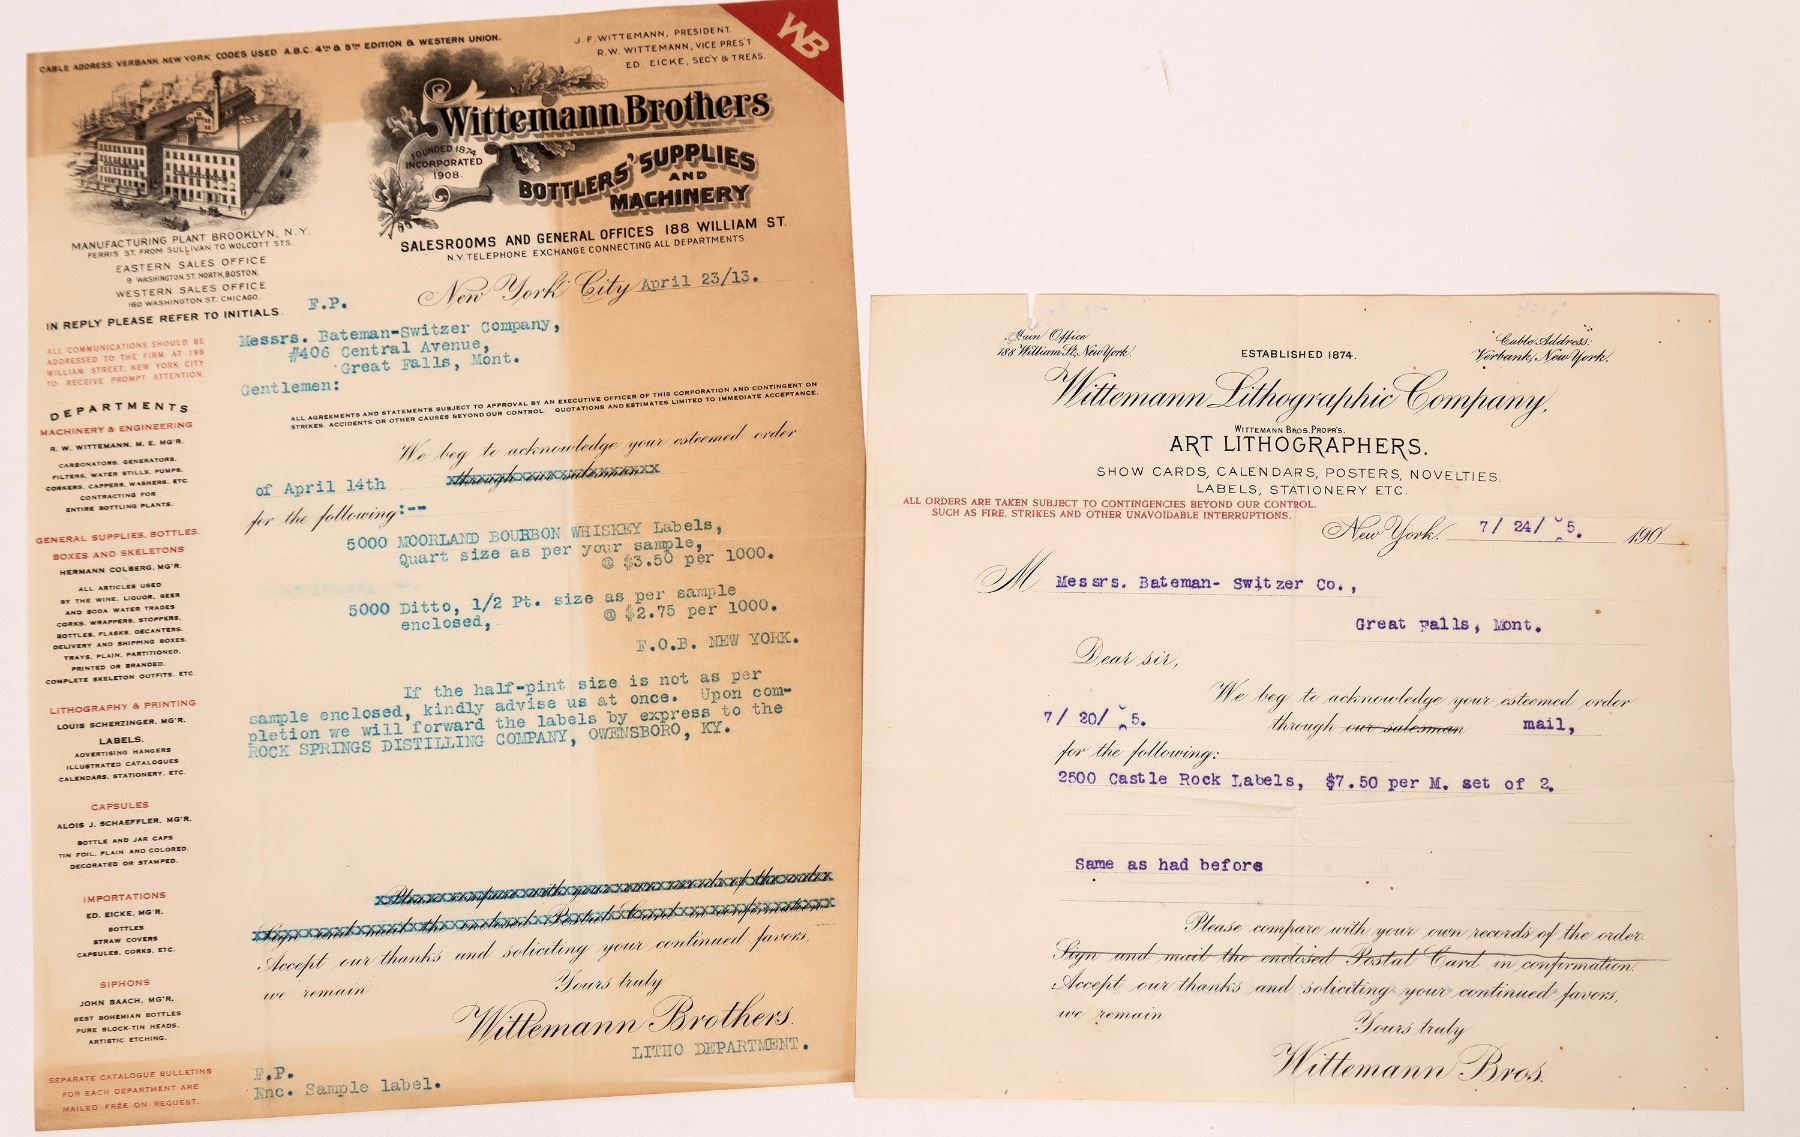 CABLE ADDRESS: VERBANK NEW YORK CODES USED A.B.C. 4TH & 5TH EDITION & WESTERN UNION.
J. F. WITTEMANN, PRESIDENT.
R. W. WITTEMANN, VICE PRES'T
ED. EICKE, SEC'Y & TREAS.
WB
Wittemann Brothers
FOUNDED 1874
INCORPORATED
1908.
BOTTLERS' SUPPLIES
AND
MACHINERY
SALESROOMS AND GENERAL OFFICES 188 WILLIAM ST.
N.Y. TELEPHONE EXCHANGE CONNECTING ALL DEPARTMENTS.
MANUFACTURING PLANT BROOKLYN, N.Y.
FERRIS ST. FROM SULLIVAN TO WOLCOTT STS.
EASTERN SALES OFFICE
9 WASHINGTON ST NORTH, BOSTON.
WESTERN SALES OFFICE
160 WASHINGTON ST. CHICAGO.
IN REPLY PLEASE REFER TO INITIALS.
F.P.
New York City April 23/13.
ALL COMMUNICATIONS SHOULD BE
ADDRESSED TO THE FIRM AT 188
WILLIAM STREET, NEW YORK CITY
TO RECEIVE PROMPT ATTENTION.
DEPARTMENTS
MACHINERY & ENGINEERING
R. W. WITTEMANN, M. E. MG'R.
CARBONATORS, GENERATORS,
FILTERS, WATER STILLS, PUMPS,
CORKERS, CAPPERS, WASHERS, ETC
CONTRACTING FOR
ENTIRE BOTTLING PLANTS.
GENERAL SUPPLIES, BOTTLES,
BOXES AND SKELETONS
HERMANN COLBERG, MG'R.
ALL ARTICLES USED
BY THE WINE, LIQUOR, BEER
AND SODA WATER TRADES
CORKS, WRAPPERS, STOPPERS,
BOTTLES, FLASKS, DECANTERS,
DELIVERY AND SHIPPING BOXES,
TRAYS, PLAIN, PARTITIONED,
PRINTED OR BRANDED.
COMPLETE SKELETON OUTFITS, ETC
LITHOGRAPHY & PRINTING
LOUIS SCHERZINGER, MG'R.
LABELS.
ADVERTISING HANGERS
ILLUSTRATED CATALOGUES
CALENDARS, STATIONERY, ETC.
CAPSULES
ALOIS J. SCHAEFFLER, MG'R.
BOTTLE AND JAR CAPS
TIN FOIL, PLAIN AND COLORED.
DECORATED OR STAMPED.
IMPORTATIONS
ED. EICKE, MG'R.
BOTTLES
STRAW COVERS
CAPSULES, CORKS, ETC.
SIPHONS
JOHN BAACH, MG'R.
BEST BOHEMIAN BOTTLES
PURE BLOCK-TIN HEADS.
ARTISTIC ETCHING.
SEPARATE CATALOGUE BULLETINS
FOR EACH DEPARTMENT ARE
MAILED FREE ON REQUEST.
Messrs. Bateman-Switzer Company,
#406 Central Avenue,
Great Falls, Mont.
Gentlemen:
ALL AGREEMENTS AND STATEMENTS SUBJECT TO APPROVAL BY AN EXECUTIVE OFFICER OF THIS CORPORATION AND CONTINGENT ON
STRIKES, ACCIDENTS OR OTHER CAUSES BEYOND OUR CONTROL. QUOTATIONS AND ESTIMATES LIMITED TO IMMEDIATE ACCEPTANCE.
We beg to acknowledge your esteemed order
of April 14th through our salesman
for the following:--
5000 MOORLAND BOURBON WHISKEY Labels,
Quart size as per your sample,
@ $3.50 per 1000.
5000 Ditto, 1/2 Pt. size as per sample
enclosed, @ $2.75 per 1000.
F.O.B. NEW YORK.
If the half-pint size is not as per
sample enclosed, kindly advise us at once. Upon com-
pletion we will forward the labels by express to the
ROCK SPRINGS DISTILLING COMPANY, OWENSBORO, KY.
Please compare with your own records of the order
Sign and mail the enclosed Postal Card in confirmation.
Accept our thanks and soliciting your continued favors,
we remain Yours truly
Wittemann Brothers.
LITHO DEPARTMENT.
F.P.
Enc. Sample label.
Main Office
188 William St, New York.
ESTABLISHED 1874.
"Cable Address:"
Verbank, New York.
Wittemann Lithographic Company,
WITTEMANN BROS. PROPR'S.
ART LITHOGRAPHERS.
SHOW CARDS, CALENDARS, POSTERS, NOVELTIES.
LABELS, STATIONERY ETC.
ALL ORDERS ARE TAKEN SUBJECT TO CONTINGENCIES BEYOND OUR CONTROL.
SUCH AS FIRE, STRIKES AND OTHER UNAVOIDABLE INTERRUPTIONS.
New York. 7/ 24/ 5. 190
M Messrs. Bateman- Switzer Co.,
Great Falls, Mont.
Dear sir,
We beg to acknowledge your esteemed order
7/ 20/ 5. through our salesman mail,
for the following:
2500 Castle Rock Labels, $7.50 per M. set of 2.
Same as had before
Please compare with your own records of the order.
Sign and mail the enclosed Postal Card in confirmation.
Accept our thanks and soliciting your continued favors,
we remain
Yours truly
Wittemann Bros.